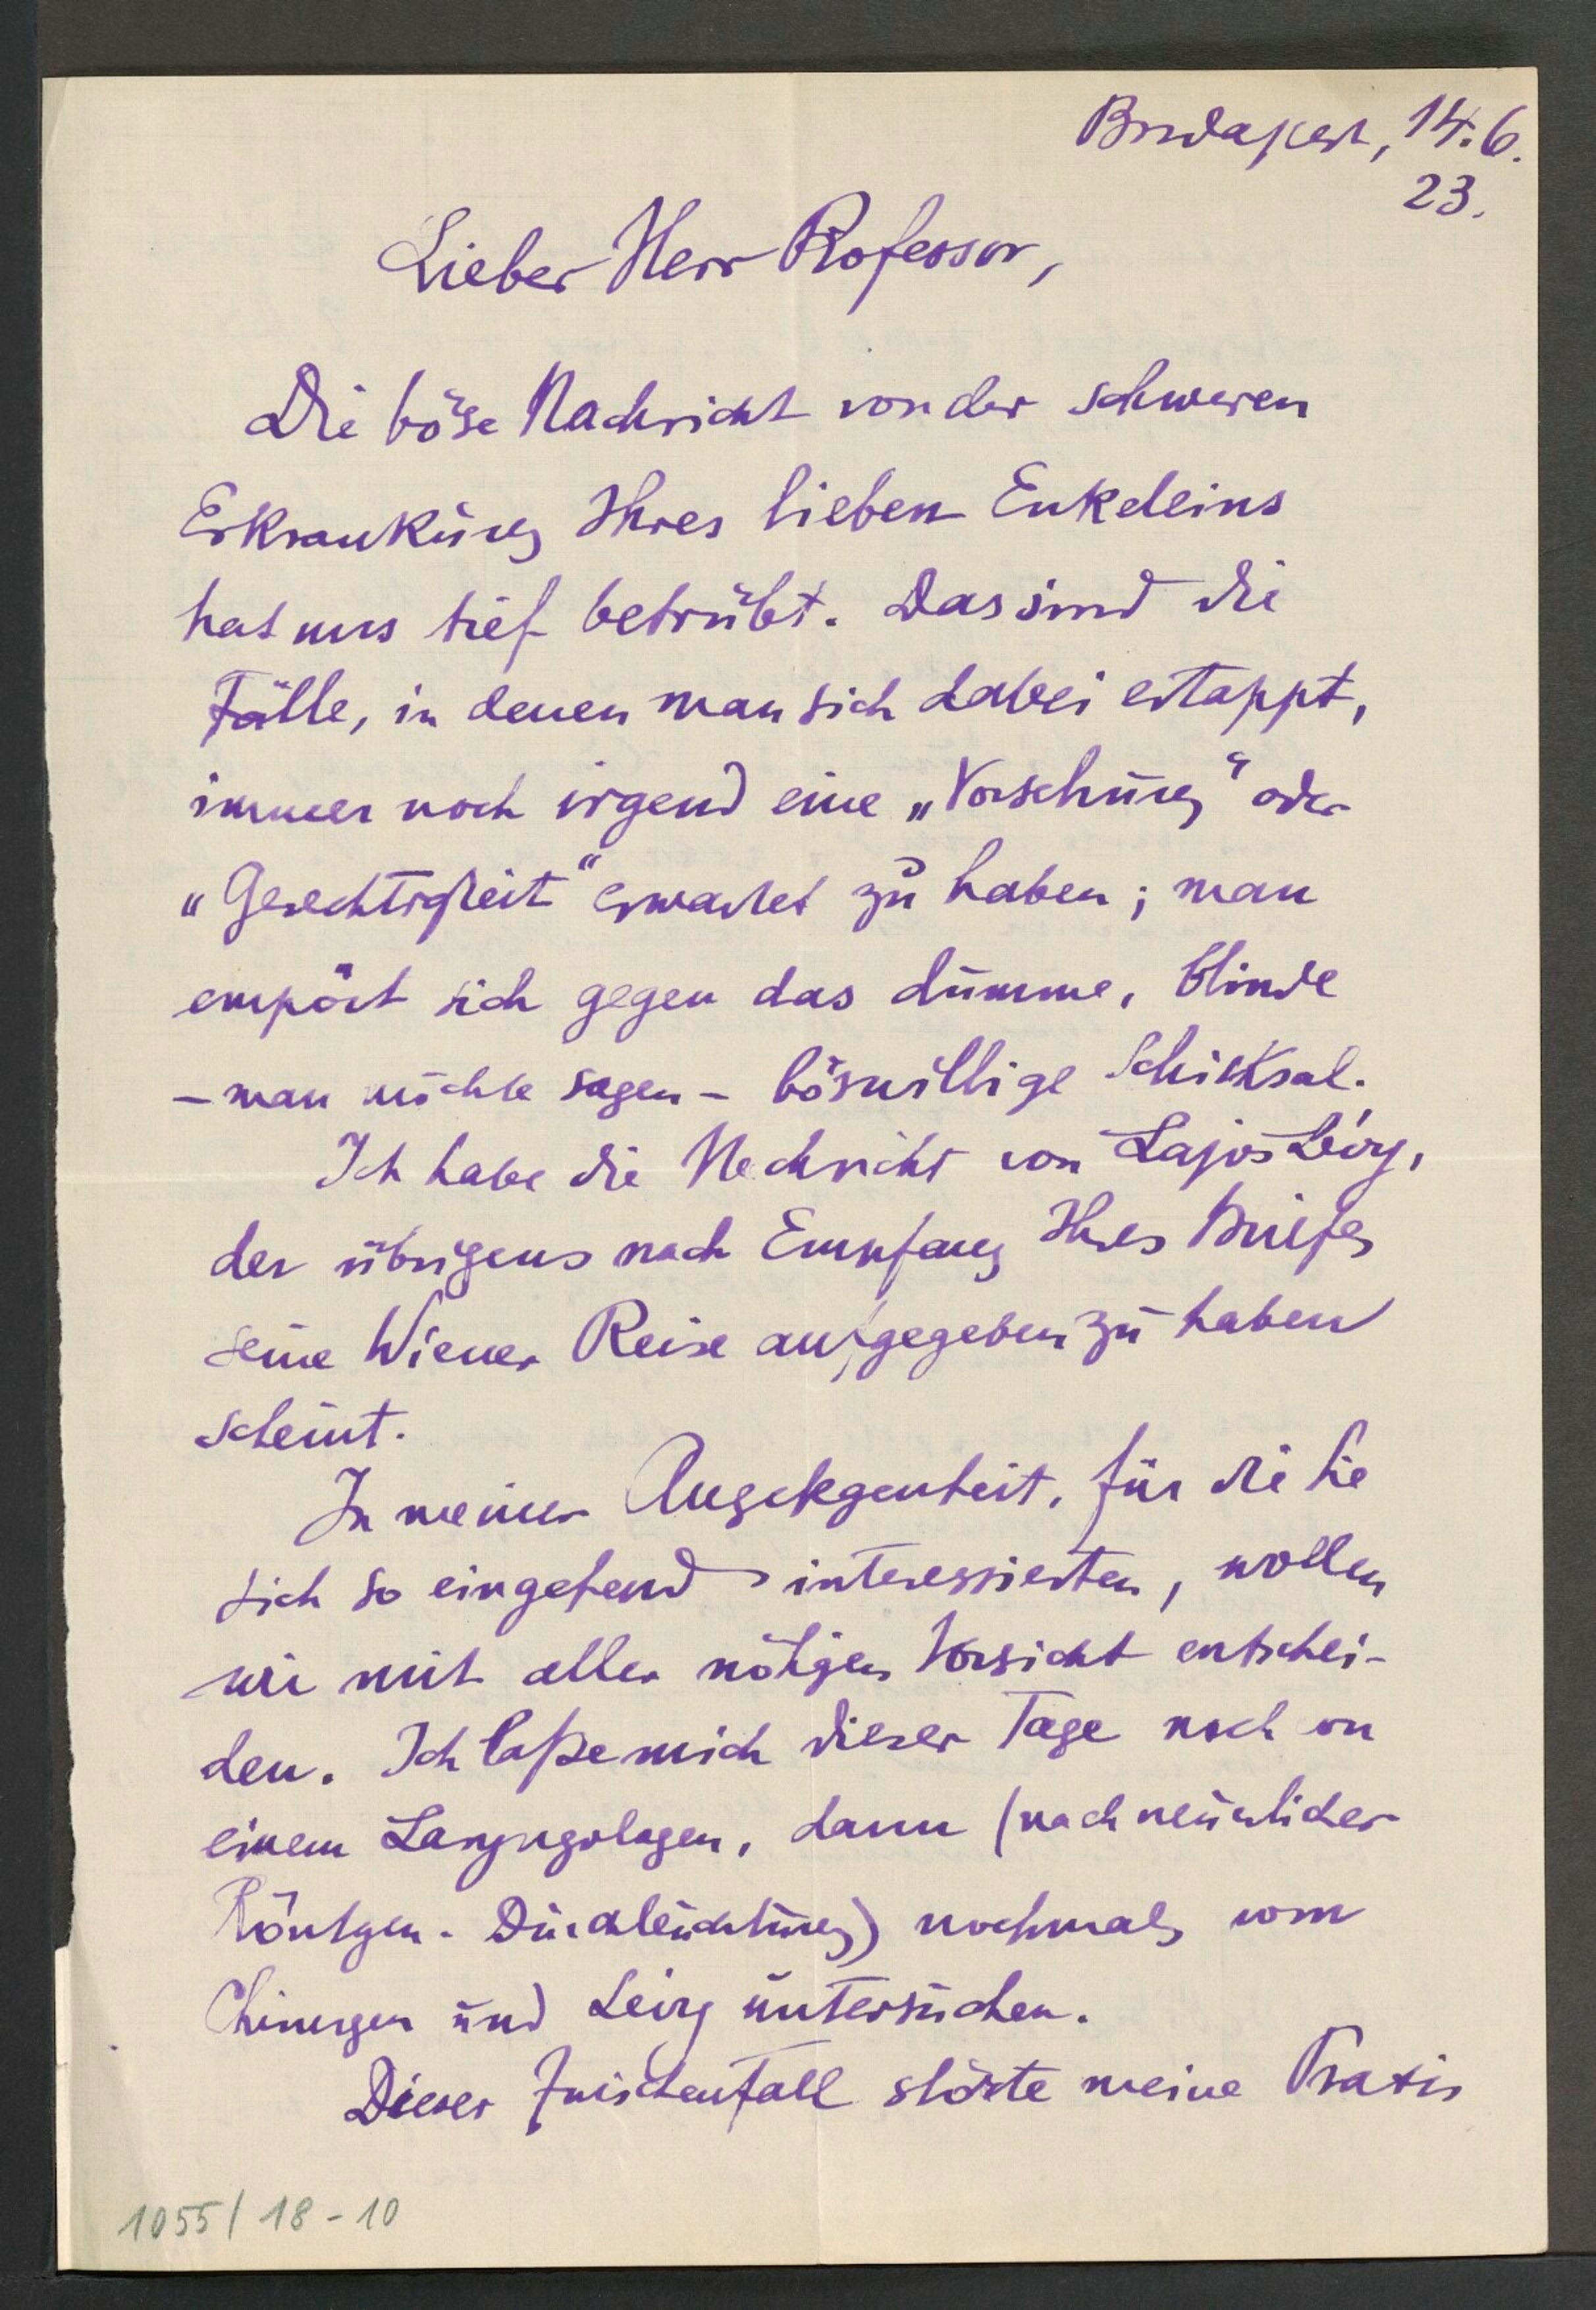 Budapest, 14.6.
23.
Lieber Herr Professor,
Die böse Nachricht von der schweren
Erkrankung Ihres lieben Enkelleins
hat uns tief betrübt. Das sind die
Fälle, in denen man sich dabei ertappt,
immer noch irgend eine „Vorsehung“ oder
„Gerechtigkeit“ erwartet zu haben; man
empört sich gegen das dumme, blinde
– man möchte sagen – böswillige Schicksal.
Ich habe die Nachricht von Lajos Lévy,
der übrigens nach Empfang Ihres Briefes
seine Wiener Reise aufgegeben zu haben
scheint.
In meiner Angelegenheit, für die Sie
sich so eingehend interessierten, wollen
wir mit aller nötigen Vorsicht entschei-
den. Ich laße mich dieser Tage noch von
einem Laryngologen, dann (nach neuerlicher
Röntgen-Durchleuchtung) nochmals vom
Chirurgen und Lévy untersuchen.
Dieser Zwischenfall störte meine Praxis
1055/18-10